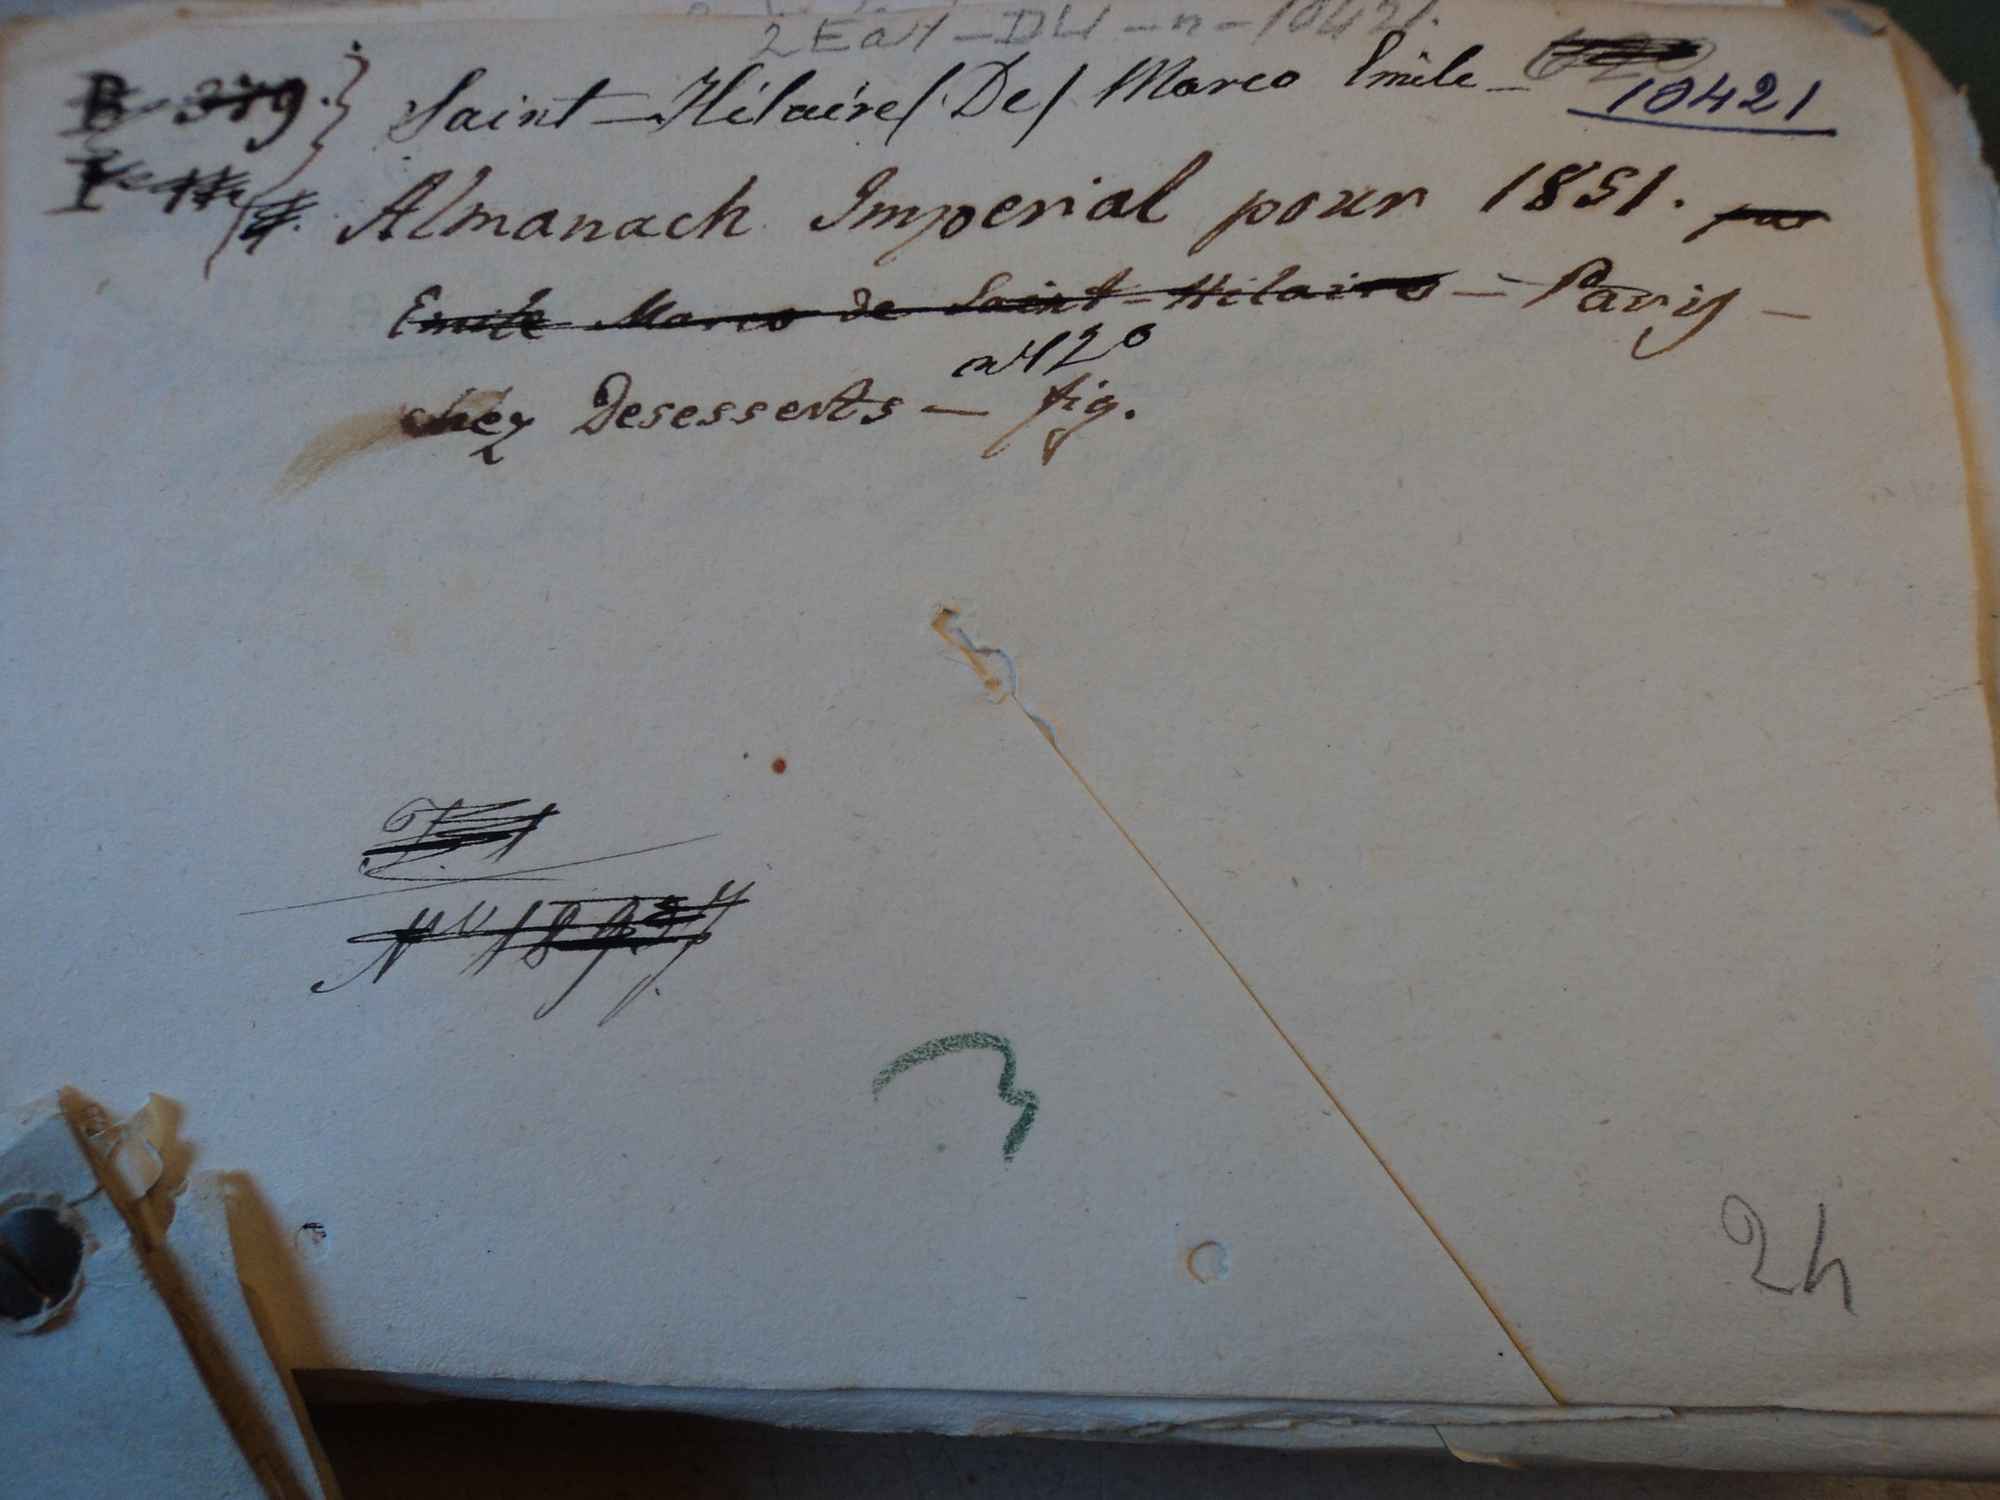 10421.
B 379. Saint-Hilaire (De) Marco Emile - 10421
Almanach Imperial pour 1851. par
Emile Marco de Saint-Hilaire - Paris -
in 12°
chez Desesserts - fig.
3
24